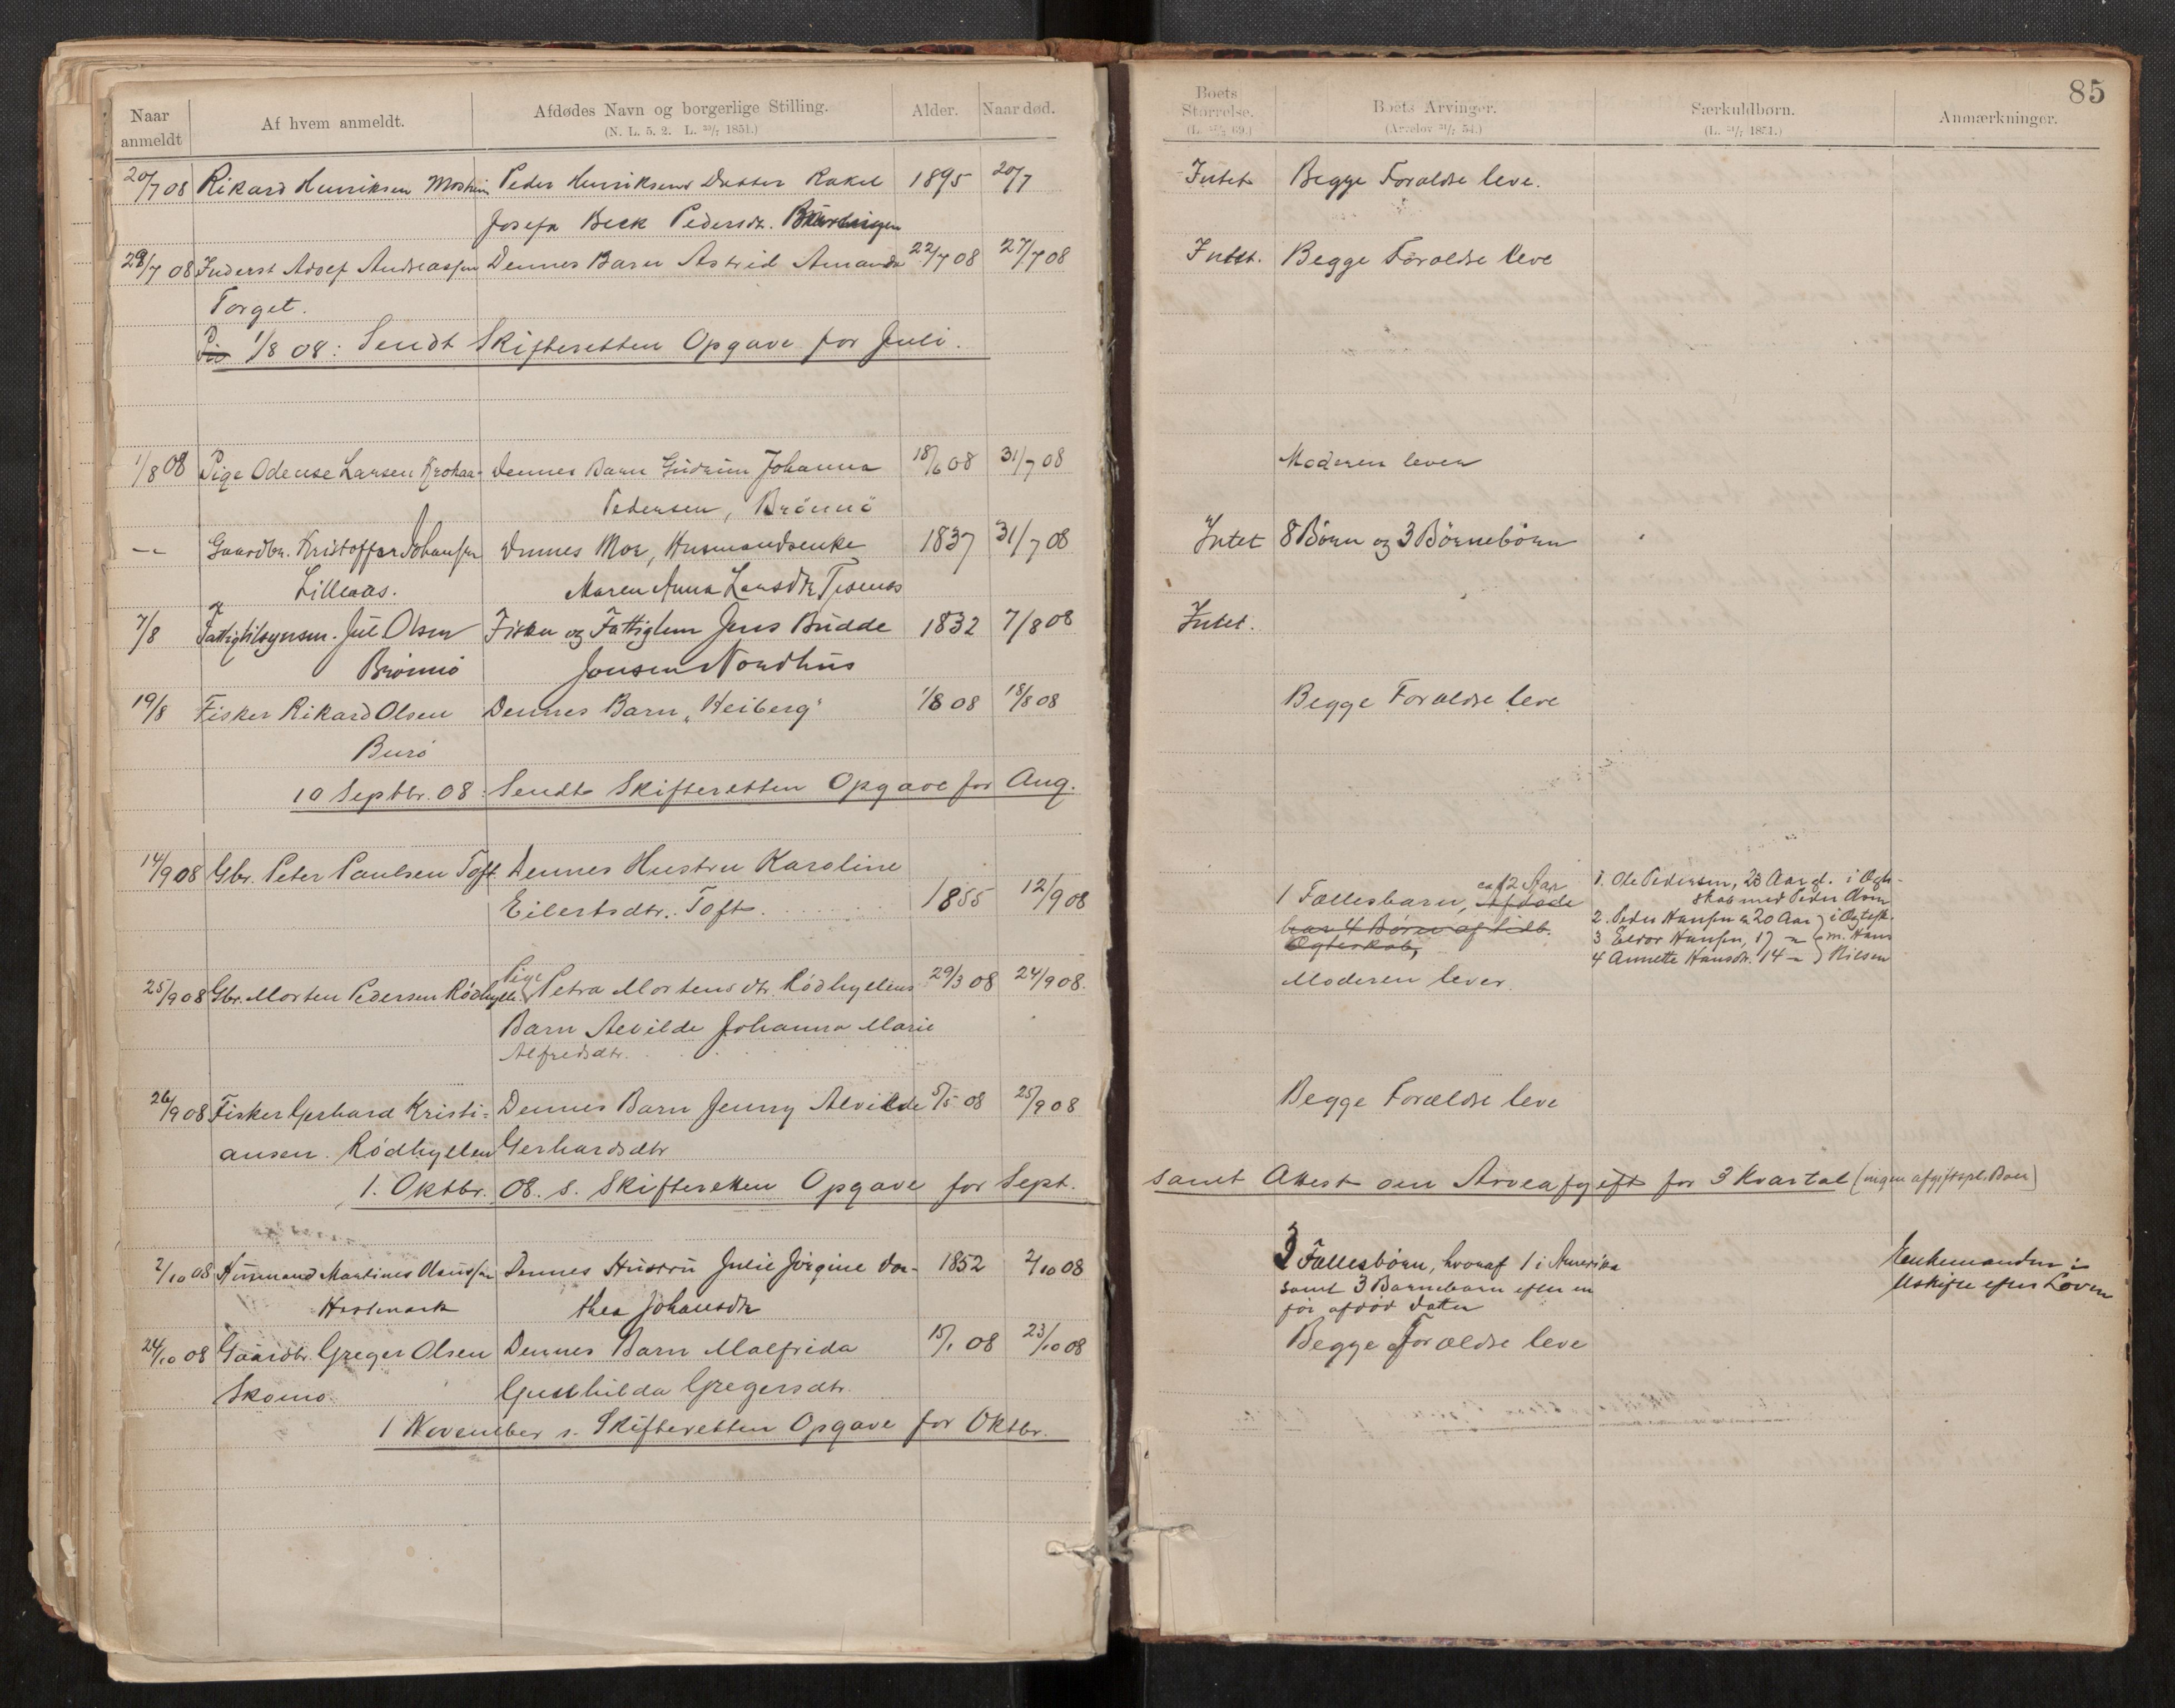 85
Naar anmeldt
Af hvem anmeldt.
Afdødes Navn og borgerlige Stilling.
(N. L. 5. 2. L. 1851.)
Alder.
Naar død.
Boets Størrelse.
Boets Arvinger.
(Arvelov 31/7 54.)
Særkuldbørn.
(L. 1851.)
Anmærkninger.
20/7 08 Rikard Henriksen Peder Henriksens Datter Rakel 1895 20/7 Intet Begge Forældre leve.
Josefa Beck Pedersdtr.
28/7 08 Inderst Adolf Andreassen Dennes Barn Astrid Amanda 22/7 08 27/7 08 Intet. Begge Forældre leve
Torget.
1/8 08: Sendt Skifteretten Opgave for Juli.
1/8 08 Pige Odense Larsen Dennes Barn Gudrun Johanna 18/6 08 31/7 08 Moderen lever
Pedersen, Brönnö
-"- Gaardbr. Kristoffer Johansen Dennes Mor, Husmandsenke 1837 31/7 08 Intet 8 Børn og 3 Børnebørn
Lilleaas. Maren Anna Larsdtr
7/8 Fattigtilsynsm. Jul Olsen Fisker og Fattiglem Jens Budde 1832 7/8 08 Intet.
Brönnö Jonsen Nordhus
19/8 Fisker Rikard Olsen Dennes Barn "Heiberg" 1/8 08 18/8 08 Begge Forældre leve
Burö
10 Septbr. 08: Sendt Skifteretten Opgave for Aug.
14/9 08 Gbr. Peter Paulsen Toft Dennes Hustru Karoline
Eilertsdtr. Toft. 1855 12/9 08 1 Fællesbarn, ca 12 Aar Afdøde
har 4 Børn af tidl.
Ægteskab,
1. Ole Pedersen, 23 Aar gl. i Ægte-
skab med Peder
2. Peder Hansen ca 20 Aar } i Ægtesk.
3 Eldor Hansen, 17 -"- } m. Hans
4 Annette Hansdtr. 14 -"- } Nilsen
25/9 08 Gbr. Morten Pedersen Rødhylla Pige Petra Mortensdtr. Rödhyllens 29/3 08 24/9 08. Moderen lever.
Barn Alvilde Johanna Marie
Alfredsdtr.
26/9 08 Fisker Gerhard Kristi= Dennes Barn Jenny Alvilde 5/5 08 25/9 08 Begge Forældre leve
ansen. Rödhyllen Gerhardsdtr
1. Oktbr. 08. s. Skifteretten Opgave for Sept. samt Attest om Arveafgift for 3 Kvartal (ingen afgiftspl. Boer)
2/10 08 Husmand Martinus Dennes Hustru Julie Jörgine Do- 1852 2/10 08 3 Fællesbörn, hvoraf 1 i Amerika Enkemanden i
thea Johansdtr samt 3 Barnebarn efter en Uskifte efter Loven
før afdød datter
24/10 08 Gaardbr. Greger Olsen Dennes Barn Malfrida 15/1 08 23/10 08 Begge Forældre leve
Skomo. Gunhilda Gregersdtr.
1 November s. Skifteretten Opgave for Oktbr.